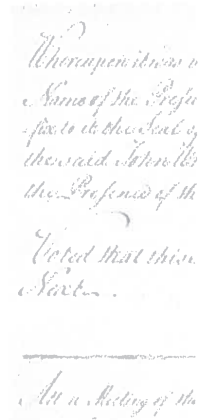 Whereupon it was v
Name of the Presi
fix to it the Seal of
the said John W
the Presence of th
Voted that this
Next
At a Meeting of the